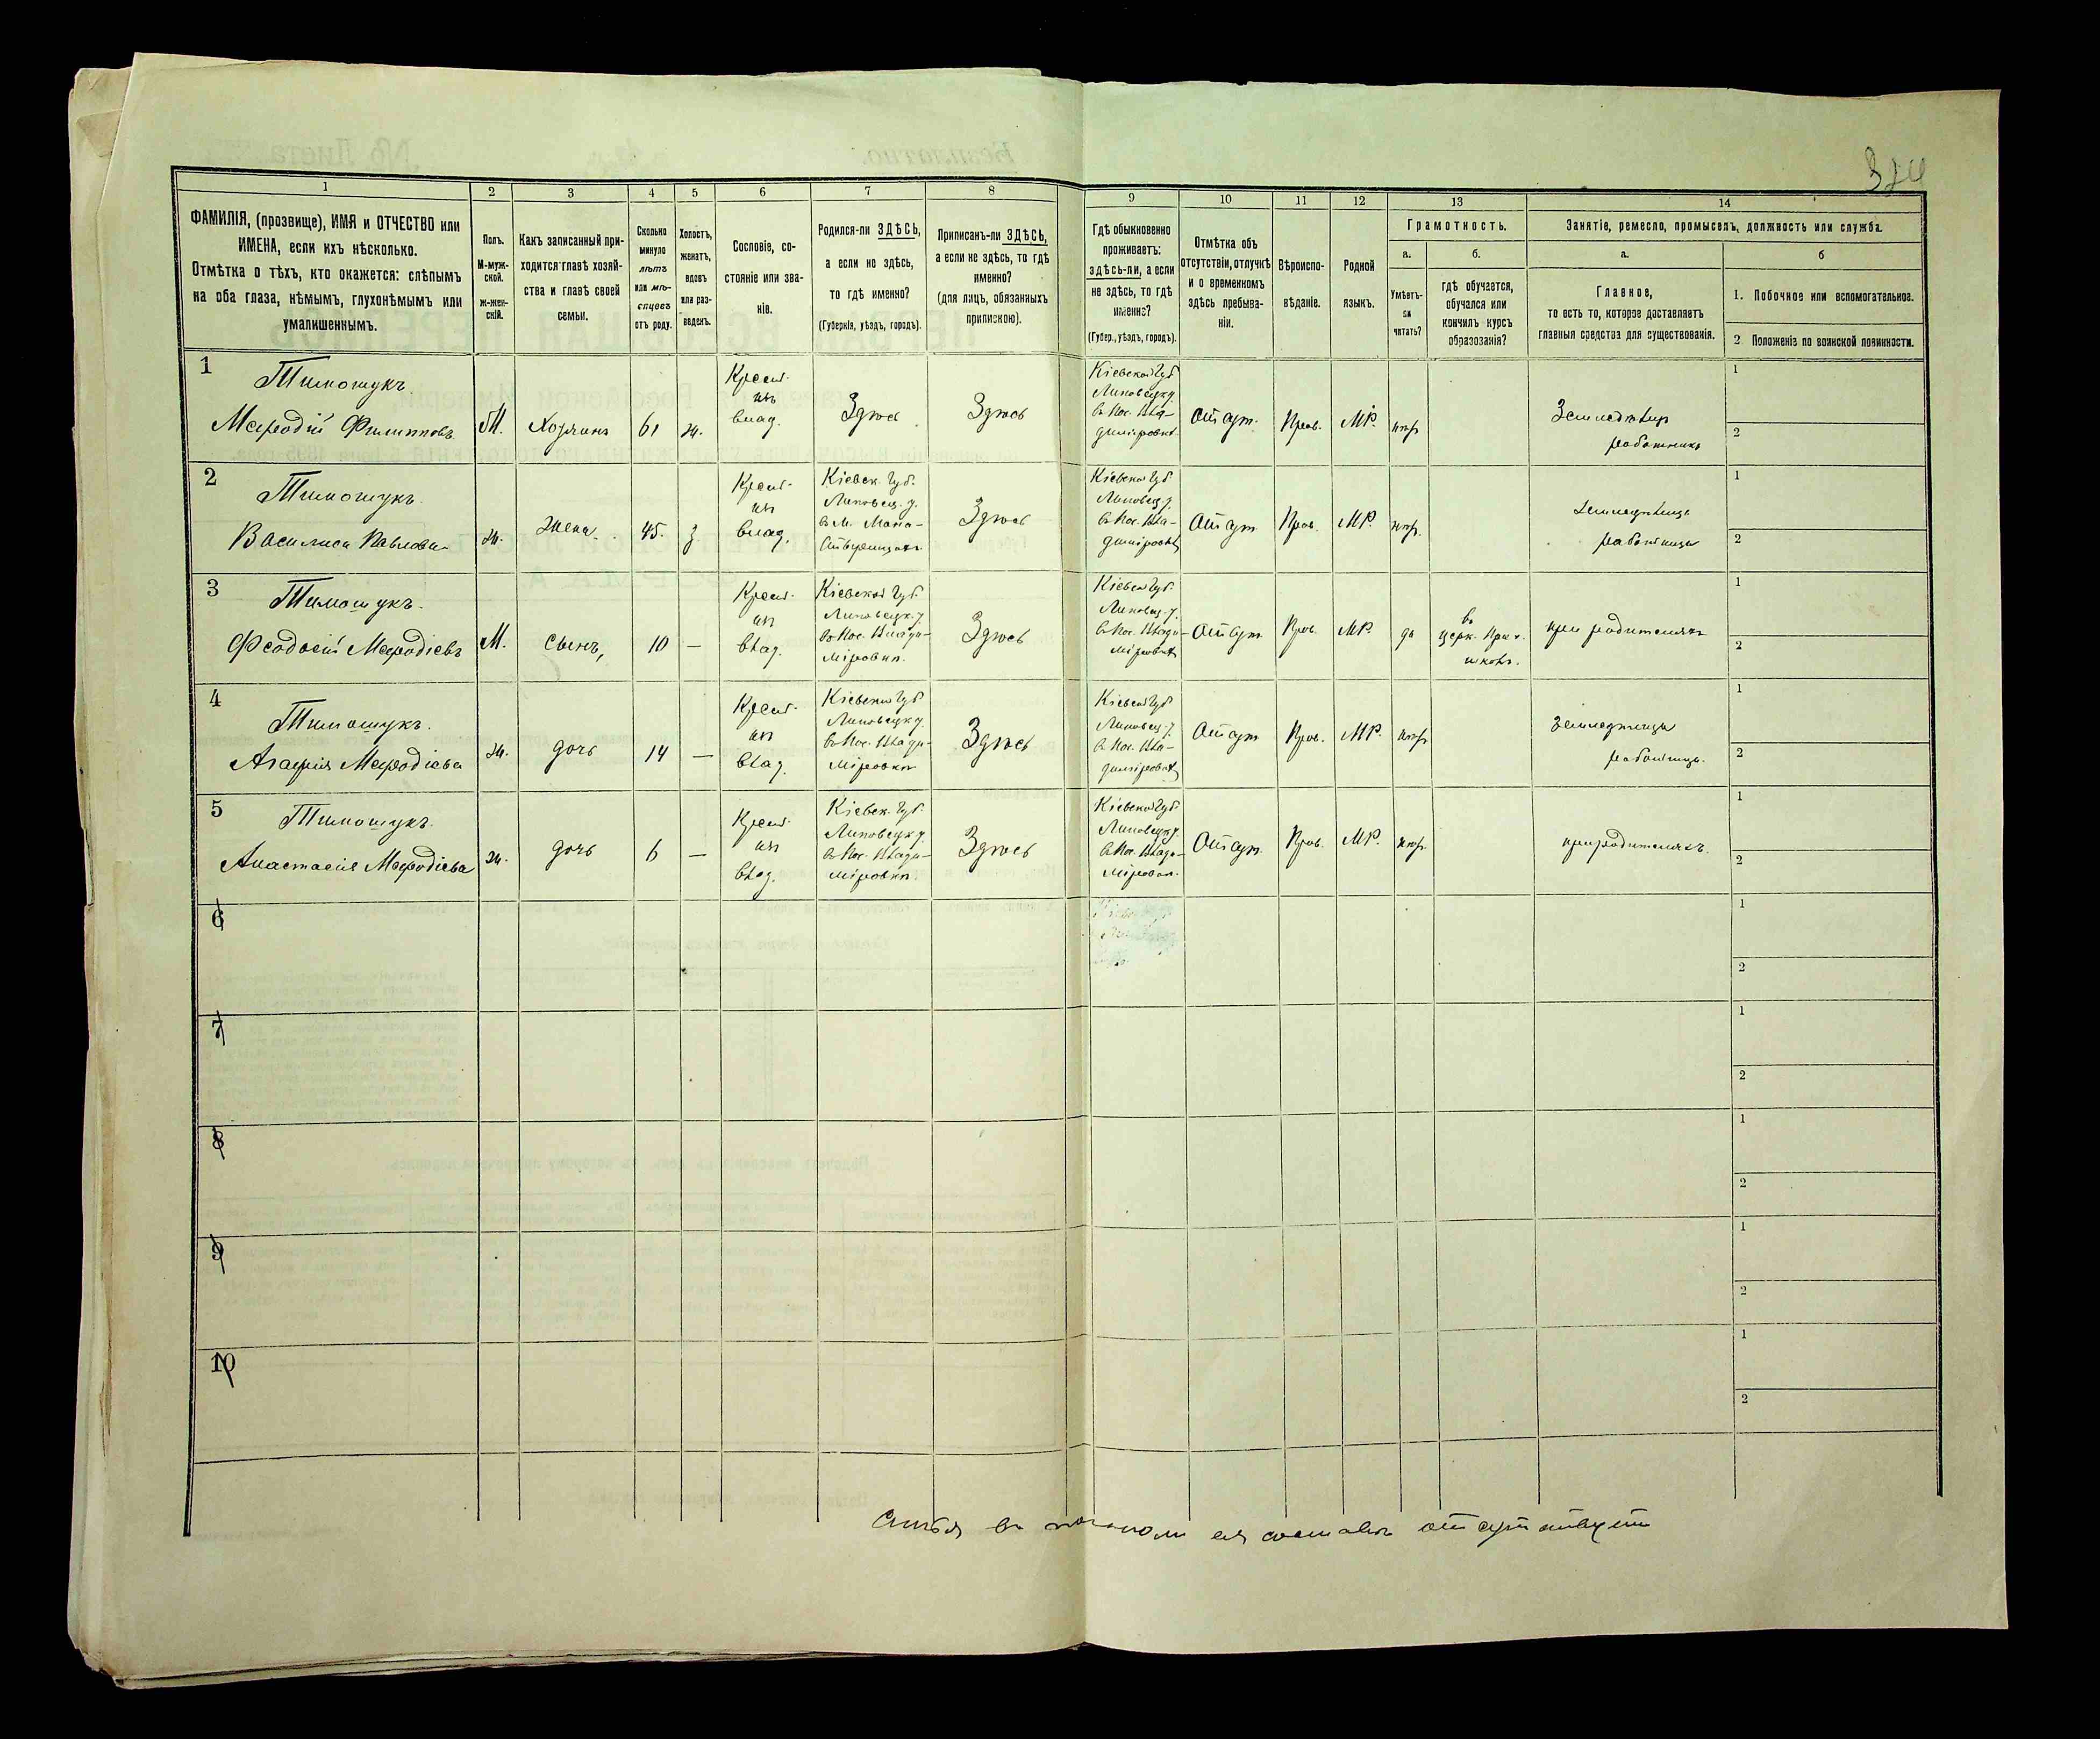 324
1
2
3
4
5
6
7
8
9
10
11
12
13
14
ФАМИЛІЯ, (прозвище), ИМЯ и ОТЧЕСТВО или
ИМЕНА, если ихъ нѣсколько.
Отмѣтка о тѣхъ, кто окажется: слѣпымъ
на оба глаза, нѣмымъ, глухонѣмымъ или
умалишеннымъ.
Полъ.
М-муж-
ской.
Ж-жен-
скій.
Какъ записанный при-
ходится главѣ хозяй-
ства и главѣ своей
семьи.
Сколько
минуло
лѣтъ
или мѣ-
сяцевъ
отъ роду.
Холостъ,
женатъ,
вдовъ
или раз-
веденъ.
Сословіе, со-
стояніе или зва-
ніе.
Родился-ли ЗДѢСЬ,
а если не здѣсь,
то гдѣ именно?
(Губернія, уѣздъ, городъ).
Приписанъ-ли ЗДѢСЬ,
а если не здѣсь, то гдѣ
именно?
(для лицъ, обязанныхъ
припискою).
Гдѣ обыкновенно
проживаетъ:
здѣсь-ли, а если
не здѣсь, то гдѣ
именно?
(Губер., уѣздъ, городъ).
Отмѣтка объ
отсутствіи, отлучкѣ
и о временномъ
здѣсь пребыва-
ніи.
Вѣроиспо-
вѣданіе.
Родной
языкъ.
Грамотность.
а.
Умѣетъ-
ли
читать?
б.
гдѣ обучается,
обучался или
кончилъ курсъ
образованія?
Занятіе, ремесло, промыселъ, должность или служба.
а.
Главное,
то есть то, которое доставляетъ
главныя средства для существованія.
б
1. Побочное или вспомогательное.
2. Положеніе по воинской повинности.
1
Тимощукъ
Мефодій Филипповъ
М.
Хозяинъ
61
ж.
Крест.
изъ
влад.
Здѣсь
Здѣсь
Кіевской Губ
Липовецк у.
в Пос. Вла-
диміровкѣ
отсут.
Прав.
МР.
нтъ
работникъ
1
2
2
Тимощукъ.
Василиса Павлова
ж.
Жена.
45.
з
Крест.
изъ
влад.
Кіевск. Губ.
Липовец. у.
Здѣсь
Кіевской Губ
Липовец. у.
в Пос. Вла-
диміровкѣ
Отсут
Прав.
МР.
нтр.
работница
1
2
3
Тимощукъ.
Феодосій Мефодіевъ
М.
Сынъ,
10
—
Крест.
изъ
влад.
Кіевской Губ.
Липовецк. у.
въ Пос. Влади-
міровкѣ.
Здѣсь
Кіевской Губ.
Липовец. у.
в Пос. Влади-
міровкѣ
Отсут
Прав.
МР
да
въ
церк. прих.
школѣ.
при родителяхъ
1
2
4
Тимощукъ.
Агафія Мефодіева
ж.
дочь
14
—
Крест.
изъ
влад.
Кіевской Губ
Липовецк у.
въ Пос. Влади-
міровкѣ
Здѣсь
Кіевской Губ
Липовец. у.
в Пос. Вла-
диміровкѣ
Отсут
Прав.
МР.
нтр
работница.
1
2
5
Тимощукъ.
Анастасія Мефодіева
ж.
дочь
6
—
Крест.
изъ
влад.
Кіевск. Губ.
Липовецк. у.
въ Пос. Влади-
міровкѣ.
Здѣсь
Кіевской Губ.
Липовецк у.
в Пос. Влади-
міровкѣ.
Отсут.
Прав.
МР.
нтр
при родителяхъ.
1
2
6
1
2
7
1
2
8
1
2
9
1
2
10
1
2
составѣ отсутствуетъ